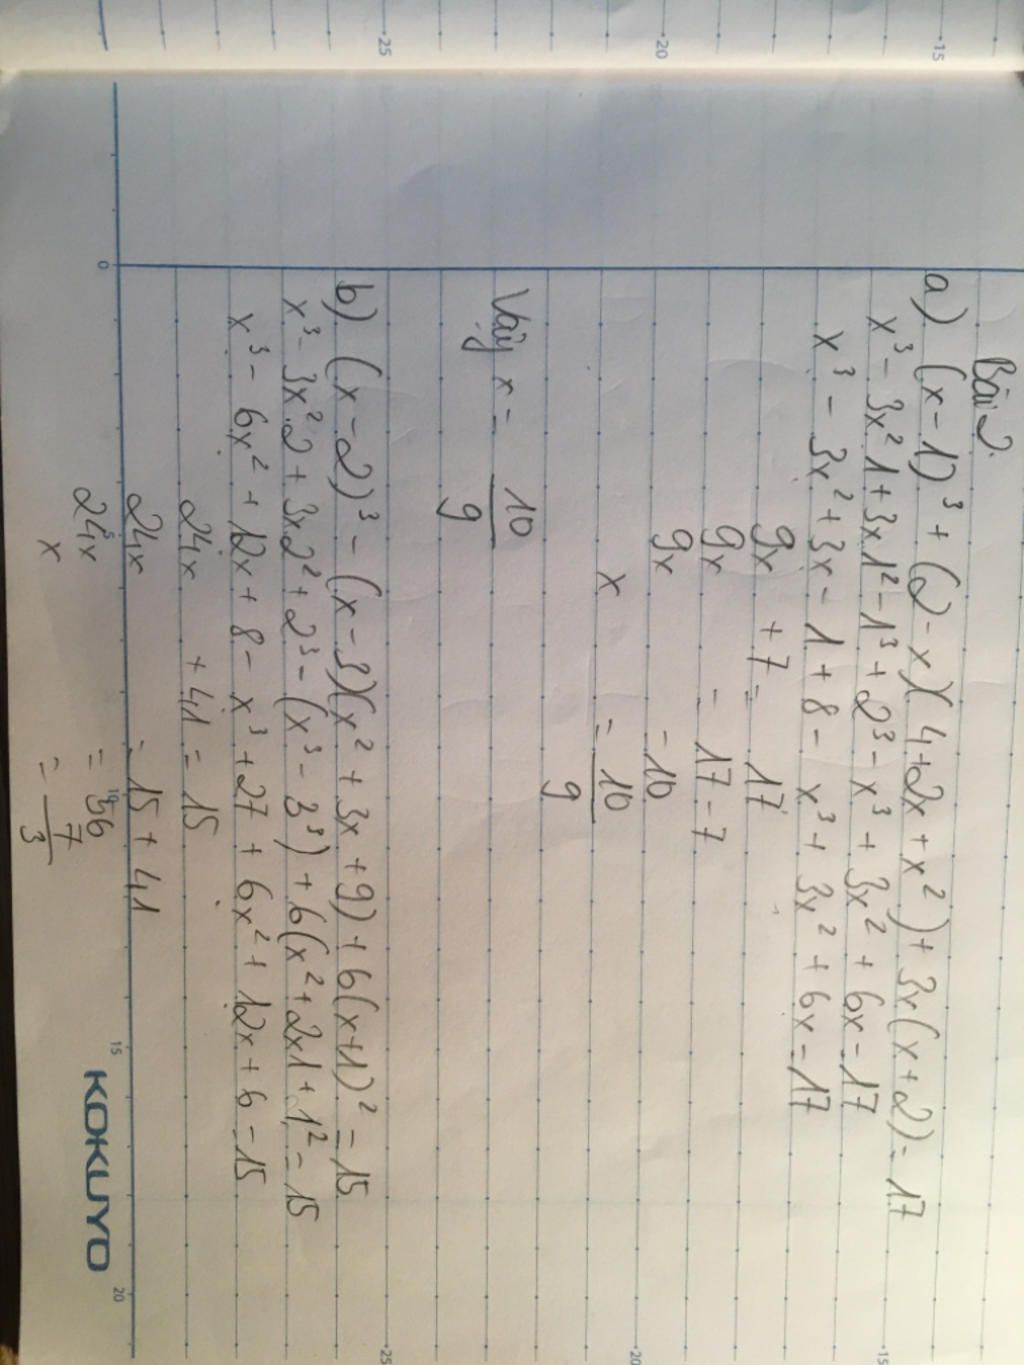 Bài 2.
a) (x-1)³ + (2-x)(4+2x+x²) + 3x(x+2) = 17
x³ - 3x²1 + 3x.1² - 1³ + 2³ - x³ + 3x² + 6x = 17
x³ - 3x² + 3x - 1 + 8 - x³ + 3x² + 6x = 17
9x + 7 = 17
9x = 17 - 7
9x = 10
x = 10/9
Vậy x = 10/9
b) (x-2)³ - (x-3)(x² + 3x + 9) + 6(x+1)² = 15
x³ - 3x²2 + 3x2² + 2³ - (x³ - 3³) + 6(x² + 2x1 + 1² = 15
x³ - 6x² + 12x + 8 - x³ + 27 + 6x² + 12x + 6 = 15
24x + 41 = 15
24x = 15 + 41
24x = 56
x = 7/3
KOKUYO
25
20
15
0
15
20
25
20
15